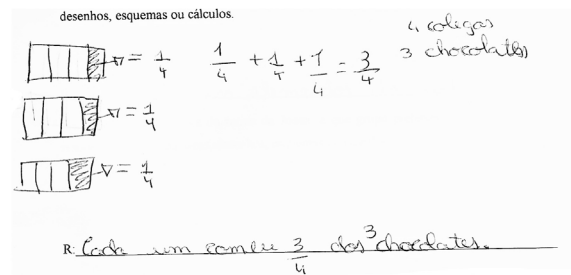 desenhos, esquemas ou cálculos.
4 colegas
3 chocolates
→ = 1/4
1/4 + 1/4 + 1/4 = 3/4
→ = 1/4
→ = 1/4
R: Cada um comeu 3/4 dos 3 chocolates.